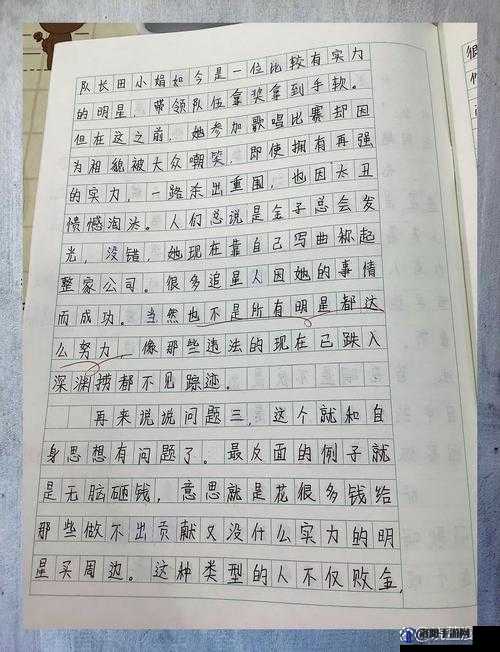 队长田小娟如今是一位比较有实力
的明星，带领队伍拿奖拿到手软。
但在这之前，她参加歌唱比赛却因
为相貌被大众嘲笑，即使拥有再强
的实力，一路杀出重围，也因太丑
愤憾淘汰。人们总说是金子总会发
光，没错，她现在靠自己写曲称起
整家公司。很多追星人因她的事情
而成功。当然也不是所有明星都这
么努力，像那些违法的现在已跌入
深渊捞都不见踪迹。
再来说说问题三，这个就和自
身思想有问题了。最反面的例子就
是无脑砸钱，意思就是花很多钱给
那些做不出贡献又没什么实力的明
星买周边。这种类型的人不仅败金，